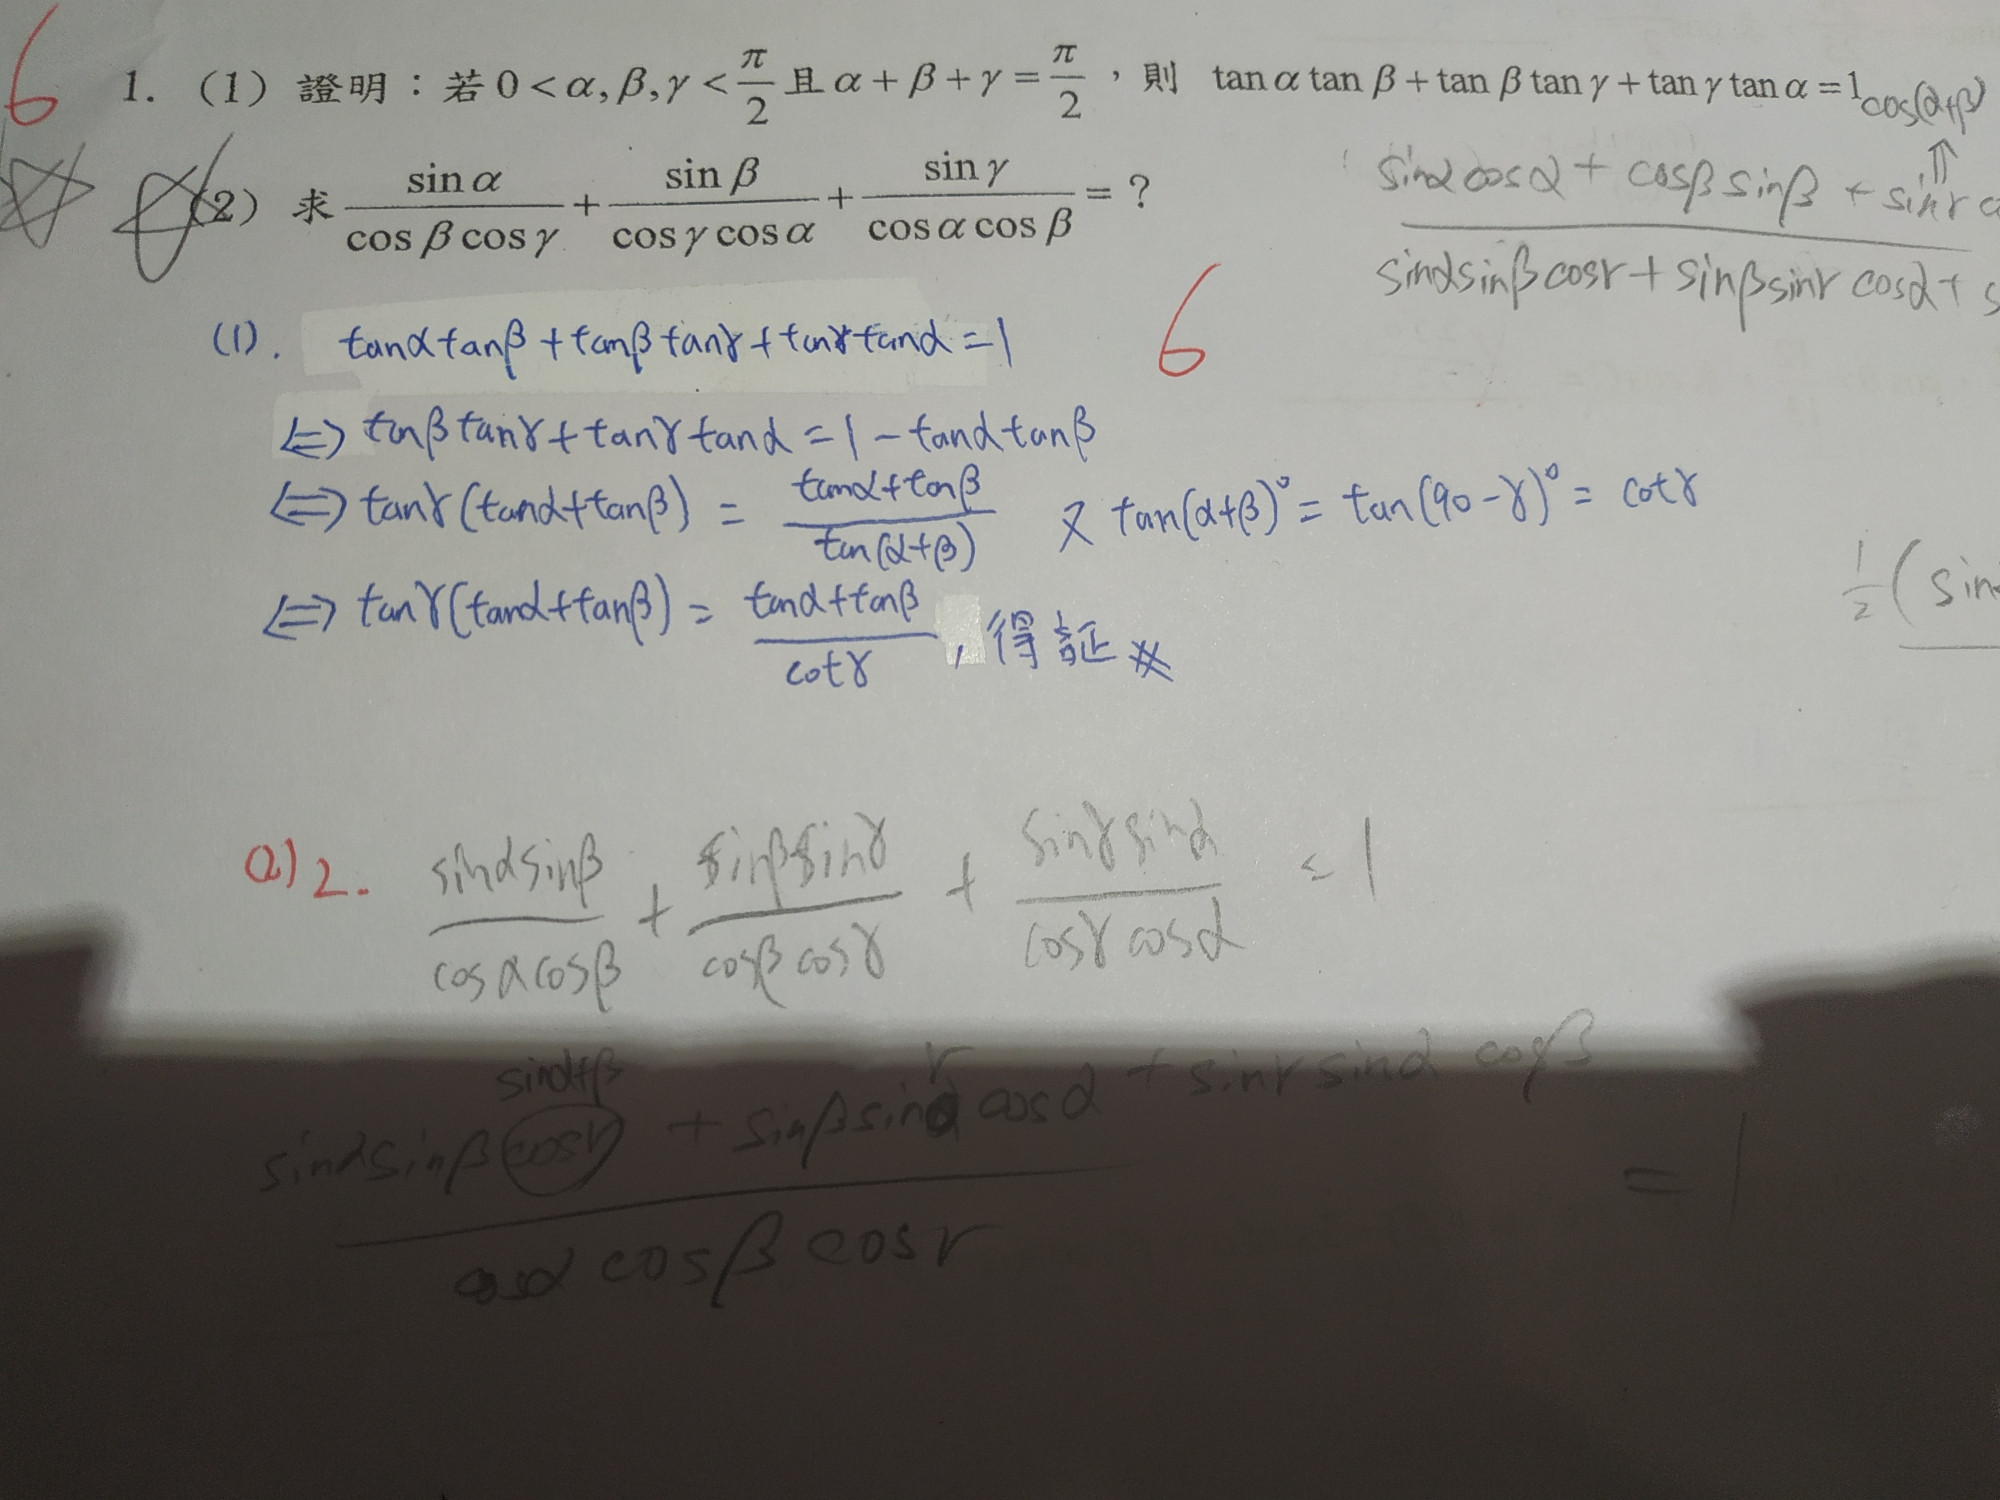 6
1. (1) 證明：若 0 < α, β, γ < π/2 且 α + β + γ = π/2 ，則 tan α tan β + tan β tan γ + tan γ tan α = 1
(2) 求 sin α / cos β cos γ + sin β / cos γ cos α + sin γ / cos α cos β = ?
cos(α+β)
⇑
sinα cosα + cosβ sinβ + sinr
sinαsinβ cosr + sinβsinr cosα +
6
(1). tanα tanβ + tanβ tanγ + tanγ tanα = 1
⇔ tanβ tanγ + tanγ tanα = 1 − tanα tanβ
⇔ tanγ (tanα+tanβ) = tanα+tanβ / tan(α+β) 又 tan(α+β)° = tan(90−γ)° = cotγ
⇔ tanγ(tanα+tanβ) = tanα+tanβ / cotγ , 得証
1/2 ( sin
(2) 2. sinαsinβ / cosαcosβ + sinβsinγ / cosβcosγ + sinγsinα / cosγcosα = 1
sinα+β
sinαsinβ cosr + sinβsin r cosα + sinr sinα cosβ / cosα cosβ cosr = 1